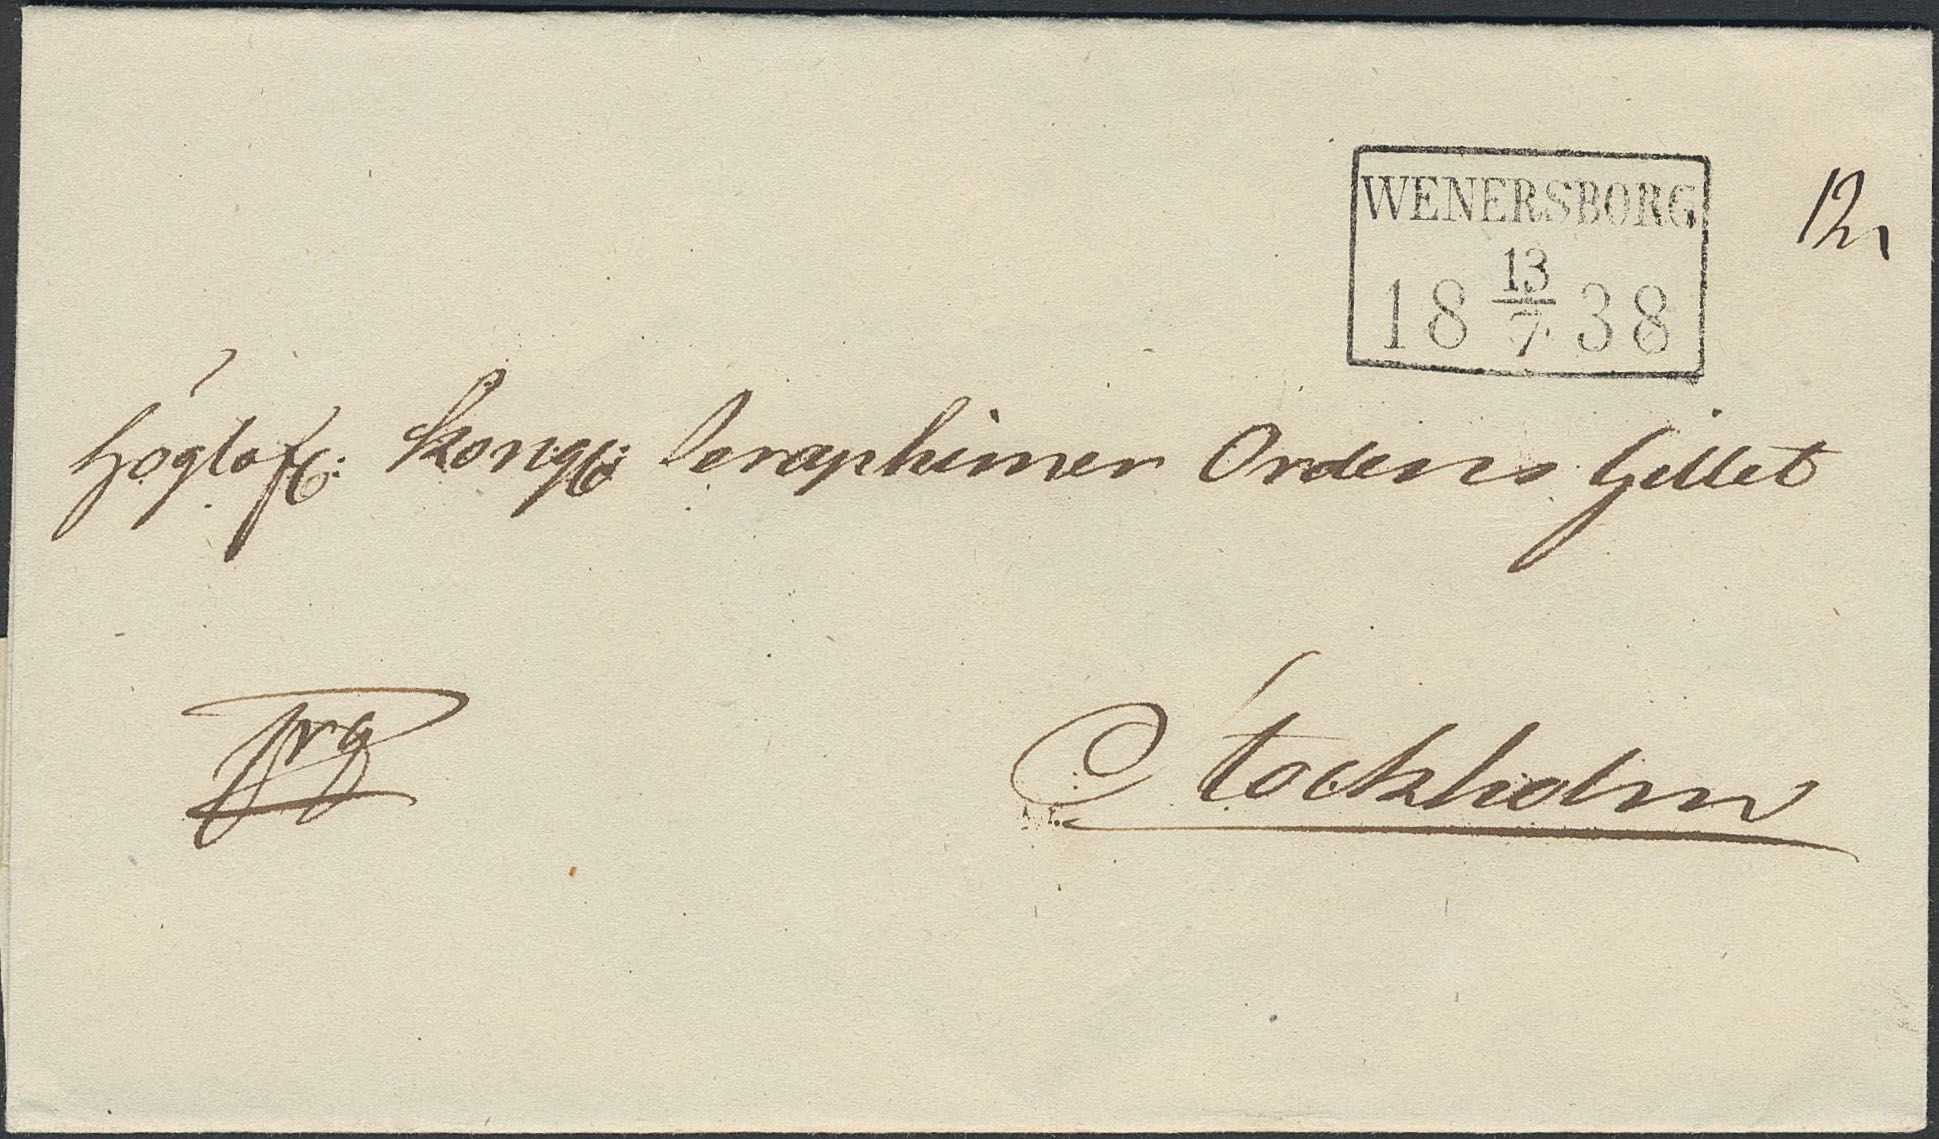 WENERSBORG
18 13/7 38
12
Höglofl: Kongl: Seraphimer Ordens Gillet
Stockholm